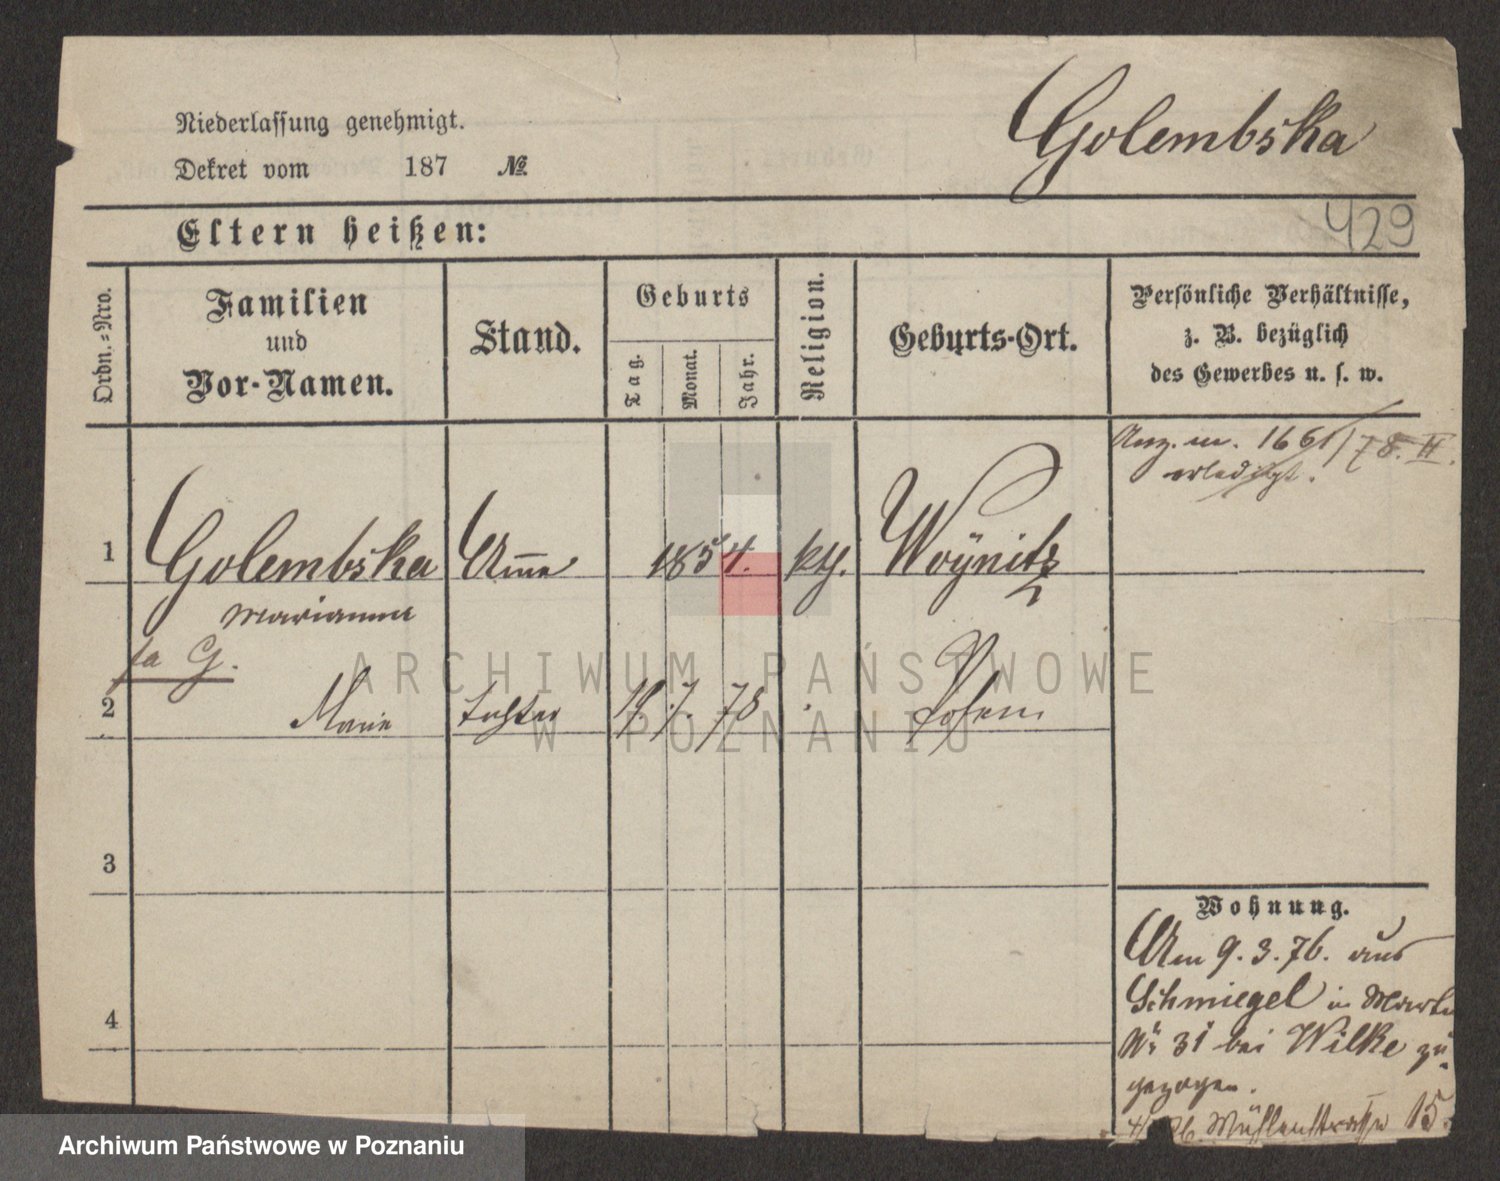 Niederlassung genehmigt.
Dekret vom 187 №
Golembska
Eltern heißen:
429
Ordn.-Nro.
Familien
und
Vor-Namen.
Stand.
Geburts
Tag.
Monat.
Jahr.
Religion.
Geburts-Ort.
Persönliche Verhältnisse,
z. B. bezüglich
des Gewerbes u. s. w.
1661/78. II.
erledigt.
1 Golembska Ame 1854. kth. Woÿnitz
Marianna
G.
2 Marie Tochter 7. 78 Posen
3
4
Wohnung.
Am 9. 3. 76. aus
Schmiegel in
Nr 31 bei Wilke zu-
gezogen.
Mühlenstraße 15.
ARCHIWUM PAŃSTWOWE
W POZNANIU
Archiwum Państwowe w Poznaniu